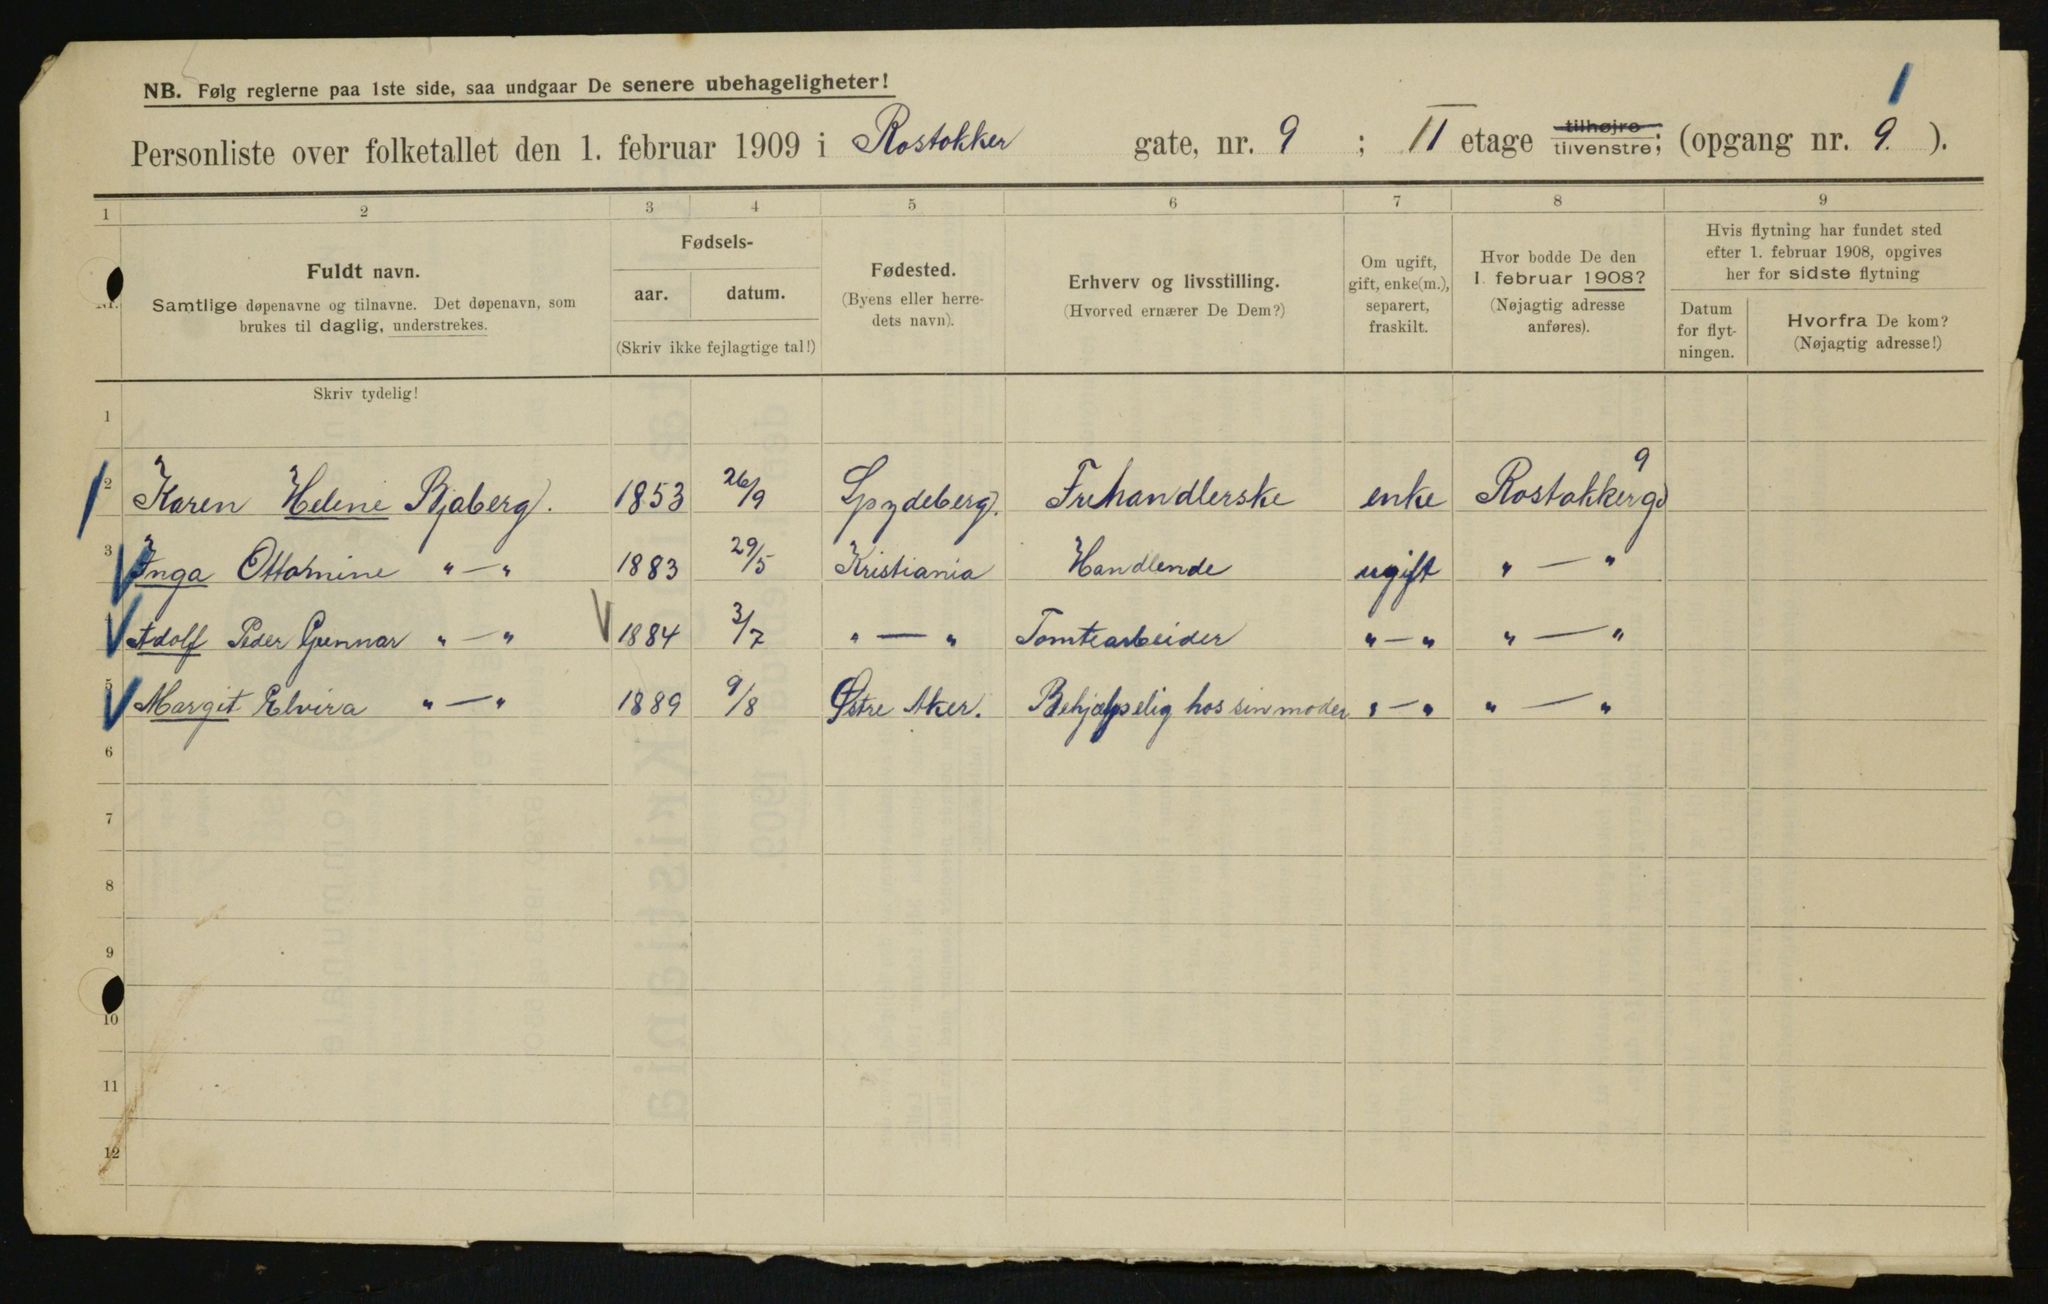 1
NB. Følg reglerne paa 1ste side, saa undgaar De senere ubehageligheter!
Personliste over folketallet den 1. februar 1909 i Rostokker gate, nr. 9 ; II etage tilhøjre tilvenstre; (opgang nr. 9. ).
1 2 3 4 5 6 7 8 9
Nr.
Fuldt navn.
Samtlige døpenavne og tilnavne. Det døpenavn, som
brukes til daglig, understrekes.
Fødsels-
aar. datum.
(Skriv ikke fejlagtige tal!)
Fødested.
(Byens eller herre-
dets navn).
Erhverv og livsstilling.
(Hvorved ernærer De Dem?)
Om ugift,
gift, enke(m.),
separert,
fraskilt.
Hvor bodde De den
1. februar 1908?
(Nøjagtig adresse
anføres).
Hvis flytning har fundet sted
efter 1. februar 1908, opgives
her for sidste flytning
Datum
for flyt-
ningen.
Hvorfra De kom?
(Nøjagtig adresse!)
Skriv tydelig!
1
2 Karen Helene Bjaberg. 1853 26/9 Spydeberg. Frihandlerske enke Rostokkerg. 9
3 Inga Ottomine " — " 1883 29/5 Kristiania Handlende ugift " — "
Adolf Peder Gunnar " — " 1884 3/7 " — " Tomtearbeider " — " " — "
5 Margit Elvira " — " 1889 9/8 Østre Aker. Behjælpselig hos sin moder " — " " — "
6
7
8
9
10
11
12